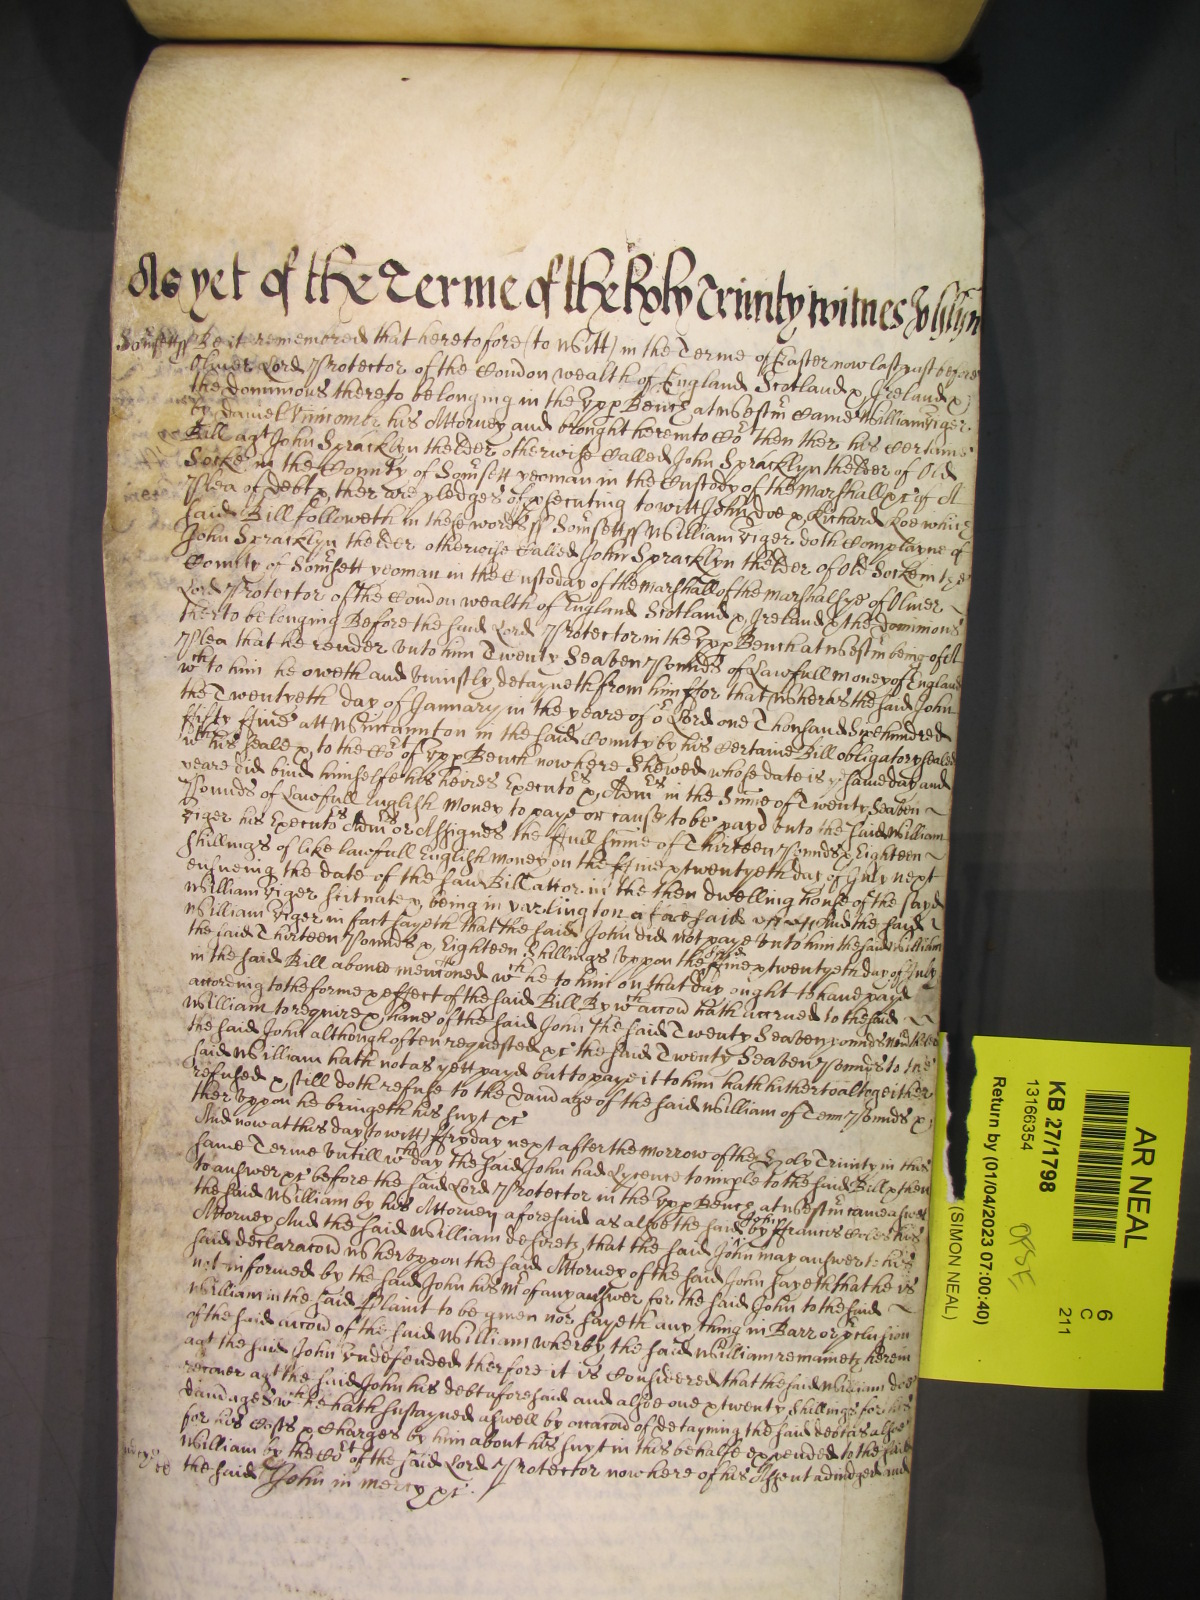 As yet of the Terme of the holy Trinity witnes
Somsett ss Be it remembred that heretofore (to witt) in the Terme of Easter now last past before
Oliver Lord Protector of the Comon wealth of England Scotland & Ireland &
the dominions thereto belonging in the Upp Bench at westm Came William Viger
by Daniel his Attorney and brought here into Cot then ther his Certaine
Bill agt John Spracklyn thelder otherwise Called John Spracklyn thelder of Old
Socke in the County of Somsett yeoman in the Custody of the Marshall &c of A
Plea of debt & ther are pledges of psecuting to witt John doe & Richard Roe which
said Bill followeth in these words ss Somsett ss William Viger doth Complayne of
John Spracklyn thelder otherwise Called John Spracklyn thelder of Old Socke in the
County of Somsett yeoman in the Custoday of the Marshall of the Marshalsye of Oliver
Lord Protector of the Comon wealth of England Scotland & Ireland & the dominions
therto belonging Before the said Lord Protector in the Upp Bench at westm being of A
Plea that he render unto him Twenty Seaven Pounds of Lawfull money of England
wch to him he oweth and uniustly detayneth from him ffor that wheras the said John
the Twentyeth day of January in the yeare of or Lord one Thousand Sixe hundred
ffifty ffive att Wincannton in the said County by his Certaine Bill obligatory sealed
wth his seale & to the Cot of Upp Bench now here Shewed whose date is ye same day and
yeare did bind himselfe his heires Executors & Admrs in the Sume of Twenty Seaven
Pounds of Lawfull English Money to paye or cause to be payd unto the said William
Viger his Executrs Admrs or Assignes the ffull sume of Thirteen Pounds & Eighteen
shillings of like lawfull English money on the ffive & twentyeth day of July next
ensueing the date of the said Bill att or in the then dwelling house of the sayd
William Viger scituate & being in varlington aforesaid And the said
William Viger in fact sayeth that the said John did not paye unto him the said William
the said Thirteen Pounds & Eighteen Shillings uppon the said ffive & twentyeth day of July
in the said Bill above mentioned wch he to him on that day ought to have payd
according to the forme & effect of the said Bill By wch accon hath accrued to the said
William to require & have of the said John the said Twenty Seaven pounds
the said John although often requested &c the said Twenty Seaven Pounds to the
said William hath not as yett payd but to paye it to him hath hitherto altogeither
refused & still doth refuse to the damage of the said William of Tenn Pounds &
theruppon he bringeth his suyt &c
And now at this day (to witt) ffryday next after the morrow of the Holy Trinity in this
same Terme untill wch day the said John had Lycence to imple to the said Bill & then
to answer &c before the said Lord Protector in the Upp Bench at westm came aswell
the said William by his Attorney aforesaid as alsoe the said John by ffrancis his
Attorney And the said William desireth that the said John may answer to his
said declaracon wheruppon the said Attorney of the said John sayeth that he is
not informed by the said John his Mr of any answer for the said John to the said
William in the said Plaint to be given nor sayeth any thing in Barr or pclusion
of the said accon of the said William wherby the said William remaineth herein
agt the said John Undefended therfore it is Considered that the said William doe
recover agt the said John his debt aforesaid and alsoe one & twenty shillings for his
damages wch he hath sustayned aswell by occacon of detayning the said debt as alsoe
for his Costs & Charges by him about his suyt in this behalfe expended to the said
William by the Cot of the said Lord Protector now here of his Assent adiudged And
the said John in mercy &c
AR NEAL
6
C
211
KB 27/1798
13166354
Return by (01/04/2023 07:00:40)
(SIMON NEAL)